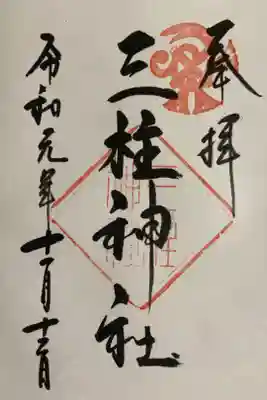 奉拝
三柱神社
令和元年十一月十三日